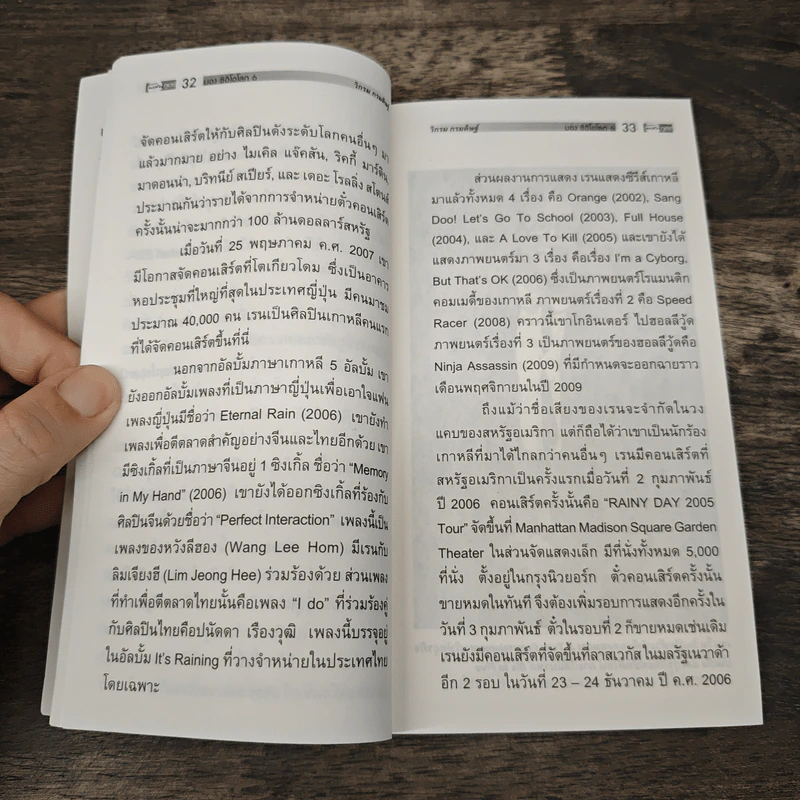 32 มอง ซีอีโอโลก 6 วิกรม กรมดิษฐ์
จัดคอนเสิร์ตให้กับศิลปินดังระดับโลกคนอื่นๆ มา
แล้วมากมาย อย่าง ไมเคิล แจ๊คสัน, ริคกี้ มาร์ติน,
มาดอนน่า, บริทนีย์ สเปียร์, และ เดอะ โรลลิ่ง สโตนส์
ประมาณกันว่ารายได้จากการจำหน่ายตั๋วคอนเสิร์ต
ครั้งนั้นน่าจะมากกว่า 100 ล้านดอลลาร์สหรัฐ
เมื่อวันที่ 25 พฤษภาคม ค.ศ. 2007 เขา
มีโอกาสจัดคอนเสิร์ตที่โตเกียวโดม ซึ่งเป็นอาคาร
หอประชุมที่ใหญ่ที่สุดในประเทศญี่ปุ่น มีคนมาชม
ประมาณ 40,000 คน เรนเป็นศิลปินเกาหลีคนแรก
ที่ได้จัดคอนเสิร์ตขึ้นที่นี่
นอกจากอัลบั้มภาษาเกาหลี 5 อัลบั้ม เขา
ยังออกอัลบั้มเพลงที่เป็นภาษาญี่ปุ่นเพื่อเอาใจแฟน
เพลงญี่ปุ่นมีชื่อว่า Eternal Rain (2006) เขายังทำ
เพลงเพื่อตีตลาดสำคัญอย่างจีนและไทยอีกด้วย เขา
มีซิงเกิ้ลที่เป็นภาษาจีนอยู่ 1 ซิงเกิ้ล ชื่อว่า “Memory
in My Hand” (2006) เขายังได้ออกซิงเกิ้ลที่ร้องกับ
ศิลปินจีนด้วยชื่อว่า “Perfect Interaction” เพลงนี้เป็น
เพลงของหวังลีฮอง (Wang Lee Hom) มีเรนกับ
ลิมเจียงฮี (Lim Jeong Hee) ร่วมร้องด้วย ส่วนเพลง
ที่ทำเพื่อตีตลาดไทยนั้นคือเพลง “I do” ที่ร่วมร้องคู่
กับศิลปินไทยคือปนัดดา เรืองวุฒิ เพลงนี้บรรจุอยู่
ในอัลบั้ม It’s Raining ที่วางจำหน่ายในประเทศไทย
โดยเฉพาะ
วิกรม กรมดิษฐ์ มอง ซีอีโอโลก 6 33
ส่วนผลงานการแสดง เรนแสดงซีรีส์เกาหลี
มาแล้วทั้งหมด 4 เรื่อง คือ Orange (2002), Sang
Doo! Let’s Go To School (2003), Full House
(2004), และ A Love To Kill (2005) และเขายังได้
แสดงภาพยนตร์มา 3 เรื่อง คือเรื่อง I’m a Cyborg,
But That’s OK (2006) ซึ่งเป็นภาพยนตร์โรแมนติก
คอมเมดี้ของเกาหลี ภาพยนตร์เรื่องที่ 2 คือ Speed
Racer (2008) คราวนี้เขาโกอินเตอร์ ไปฮอลลีวู้ด
ภาพยนตร์เรื่องที่ 3 เป็นภาพยนตร์ของฮอลลีวู้ดคือ
Ninja Assassin (2009) ที่มีกำหนดจะออกฉายราว
เดือนพฤศจิกายนในปี 2009
ถึงแม้ว่าชื่อเสียงของเรนจะจำกัดในวง
แคบของสหรัฐอเมริกา แต่ก็ถือได้ว่าเขาเป็นนักร้อง
เกาหลีที่มาได้ไกลกว่าคนอื่นๆ เรนมีคอนเสิร์ตที่
สหรัฐอเมริกาเป็นครั้งแรกเมื่อวันที่ 2 กุมภาพันธ์
ปี 2006 คอนเสิร์ตครั้งนั้นคือ “RAINY DAY 2005
Tour” จัดขึ้นที่ Manhattan Madison Square Garden
Theater ในส่วนจัดแสดงเล็ก มีที่นั่งทั้งหมด 5,000
ที่นั่ง ตั้งอยู่ในกรุงนิวยอร์ก ตั๋วคอนเสิร์ตครั้งนั้น
ขายหมดในทันที จึงต้องเพิ่มรอบการแสดงอีกครั้งใน
วันที่ 3 กุมภาพันธ์ ตั๋วในรอบที่ 2 ก็ขายหมดเช่นเดิม
เรนยังมีคอนเสิร์ตที่จัดขึ้นที่ลาสเวกัส ในมลรัฐเนวาด้า
อีก 2 รอบ ในวันที่ 23 – 24 ธันวาคม ปี ค.ศ. 2006